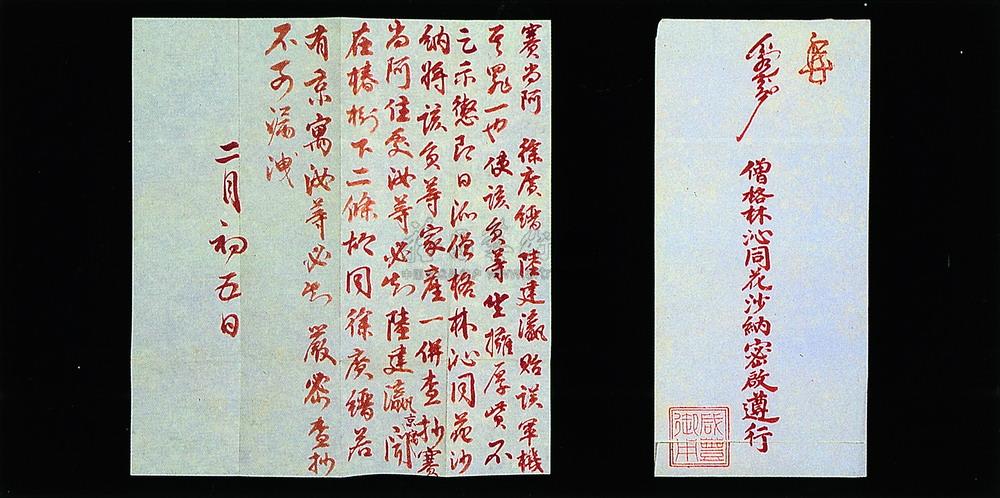 僧格林沁同花沙納密啟遵行
咸豐
御用
賽尚阿 徐廣縉 陸建瀛貽誤軍機
其罪一也使該員等坐擁厚貲不
足示懲即日派僧格林沁同花沙
納將該員等家產一併查抄賽
尚阿住處汝等必知陸建瀛京寓聞
在椿樹下二條胡同徐廣縉若
有京寓汝等必知嚴密查抄
不可漏洩
二月初五日